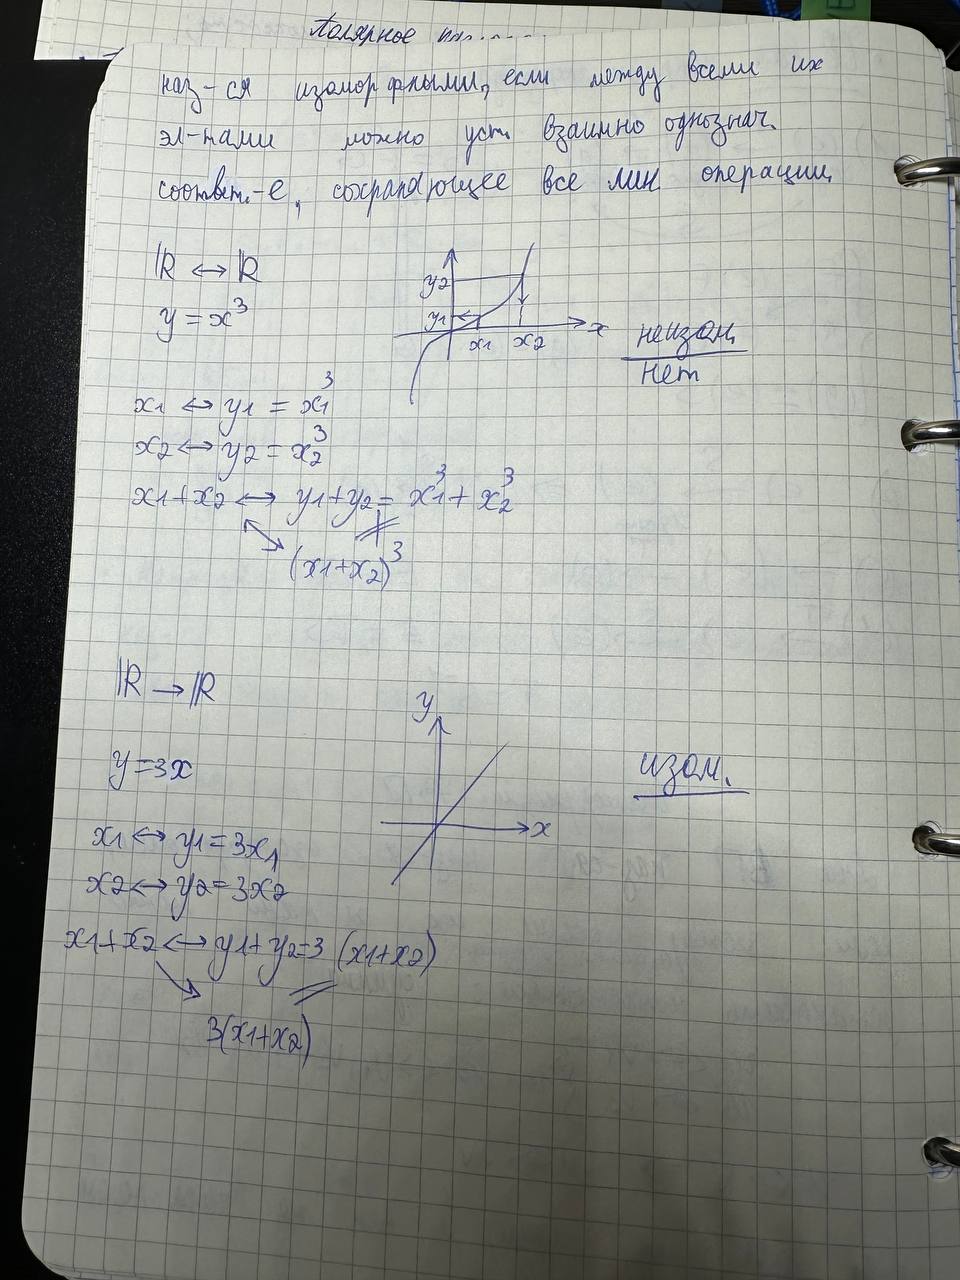 Полярное
наз-ся изоморфными, если между всеми их
эл-тами можно уст. взаимно однознач.
соответ.-е, сохраняющее все лин операции.
ℝ ↔ ℝ
y = x³
y2
y1
x1 x2 x
неизом.
нет
x1 ↔ y1 = x1³
x2 ↔ y2 = x2³
x1+x2 ↔ y1+y2 = x1³ + x2³
≠
(x1+x2)³
ℝ → ℝ
y
y=3x
изом.
x
x1 ↔ y1=3x1
x2 ↔ y2=3x2
x1+x2 ↔ y1+y2=3(x1+x2)
=
3(x1+x2)